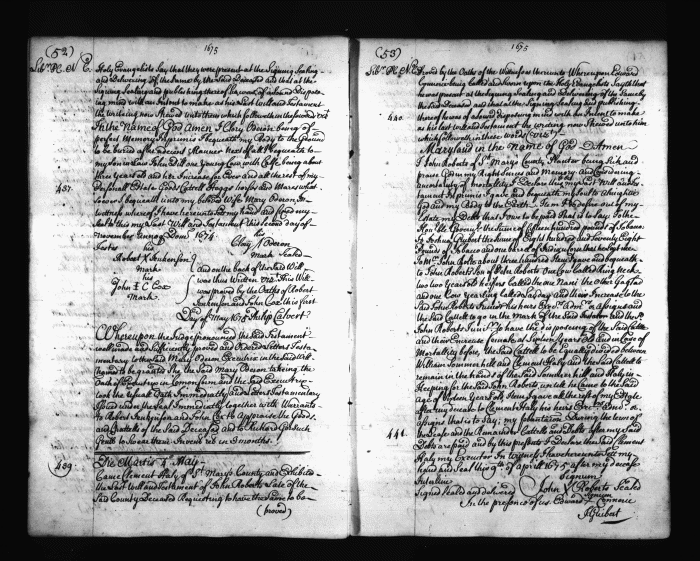 (52) 1675
Lib. H. N E.
Holy Evangelists Say that they were present at the Signing Sealing
and Delivering of the same by the Said Deceased and that at the
Signing Sealing and publishing thereof he was of
mind with an Intent to make as his Last Will and Testament
the writeing now Shewed unto them which followeth in these words vizt
In the Name of God Amen I Cloy Oderon being of
perfect Memory Imprimis I bequeath my Body to the Ground
to be buried after a decent Manner Next of all I bequeath to
my Son in Law John a young Cow with Calfe being about
three years old and her Increase for Ever and all the rest of my
Personall Estate Goods Cattell Hoggs horses and Mares what
437.
soever I bequeath unto my beloved Wife Mary Oderon In
wittness whereof I have hereunto Sett my hand and fixed my
Seale this my Last Will and Testament this Second day of
November Annoq Dom 1674
his
Testes his Cloy Oderon
Robert X Jenkenson mark Sealed
mark
his
John I C Cox
Mark
And on the back of the Said Will
was thus Written vizt This Will
was proved by the Oaths of Robert
Jenkenson and John Cox this first
Day of May 1675 Philip Calvert
Whereupon the Judge pronounced the Said Testament
well and Sufficiently proved and Decreed Letters Testa
mentary to the said Mary Oderon Executrix in the Said Will
named to be granted She the Said Mary Oderon takeing the
Oath of Executrix in Common form and the Said Executrix
took the usuall Oath Immediately and Letters Testamentary
Issued under the Seal Immediately together with Warrants
to Robert Jenkenson and John Cox to Appraise the Goods
and Chattells of the Said Deceased and to Richard
Gent to Swear them Invent ret in 3 months.
439.
Die Martis 4o Maij
Came Clement Haly of St Marys County and Exhibited
the Last Will and Testament of John Roberts Late of the
Said County Deceased Requesting to have the Same to be
(proved)
(53) 1675
Lib. H. N E.
proved by the Oaths of the Witnesses thereunto Whereupon Edward
being Called and Sworn upon the Holy Evangelists Sayeth that
he was present at the Signing Sealing and Delivering of the Same by
the Said Deceased and that at the Signing Sealing and publishing
440.
thereof he was of a sound disposing mind with an Intent to make
as his last Will and Testament the writeing now Shewed unto him
which followeth in these words vizt
Maryland in the name of God Amen
I John Roberts of St Marys County Planter being Sick and
praise God in my Right Sences and Memory and Considering
uncertainty of mortallity I Declare this my Last Will and Tes
tament Imprimis I give and bequeath my Soul to Almighty
God and my Body to the Earth. Item I desire out of my
Estate my Debts that I owe to be paid that is to say To the
the Sume of fifteen hundred pounds of Tobacco
To Joshua Guibert the Sume of Eight hundred and Seventy Eight
pounds of Tobacco
to Mr John about three hundred Item I gave and bequeath
to John Roberts Son of John Roberts One Cow called
two two years old heifers Called the one Nan the other Gagtail
and one Cow yearling Called Ladyday and their Increase to the
Said John Roberts Junior his heirs Exrs Admrs or assigns and
the Said Cattell to go in the Mark of the Said Testator and the Said
John Roberts Junr to have the disposeing of the Said Cattle
and their Encrease female at Sixteen years old and in Case of
Mortallity before the Said Cattell to be Equally divided between
William Sommerhill and Clement Haly and the Said Cattell to
remain in the hands of the Said Sommerhill and Haly in
Keeping for the Said John Roberts untill he come to the Said
Age of Sixteen Years Old Item I gave all the rest of my Estate
after my decease to Clement Haly his heirs Exrs Admrs or
assigns that is to say; my plantation During the tearm of
the Lease and the Remainder Cattell and Debts after my Said
441.
Debts are paid and by this presents I Declare the Said Clement
Haly my Executor In witness I have hereunto Sett my
hand and Seal this 9th of Aprill 1675 after my decease
Signum
Signed Sealed and delivered John X Roberts Sealed
In the presence of us Edward Connerie
Signum
J Guibert